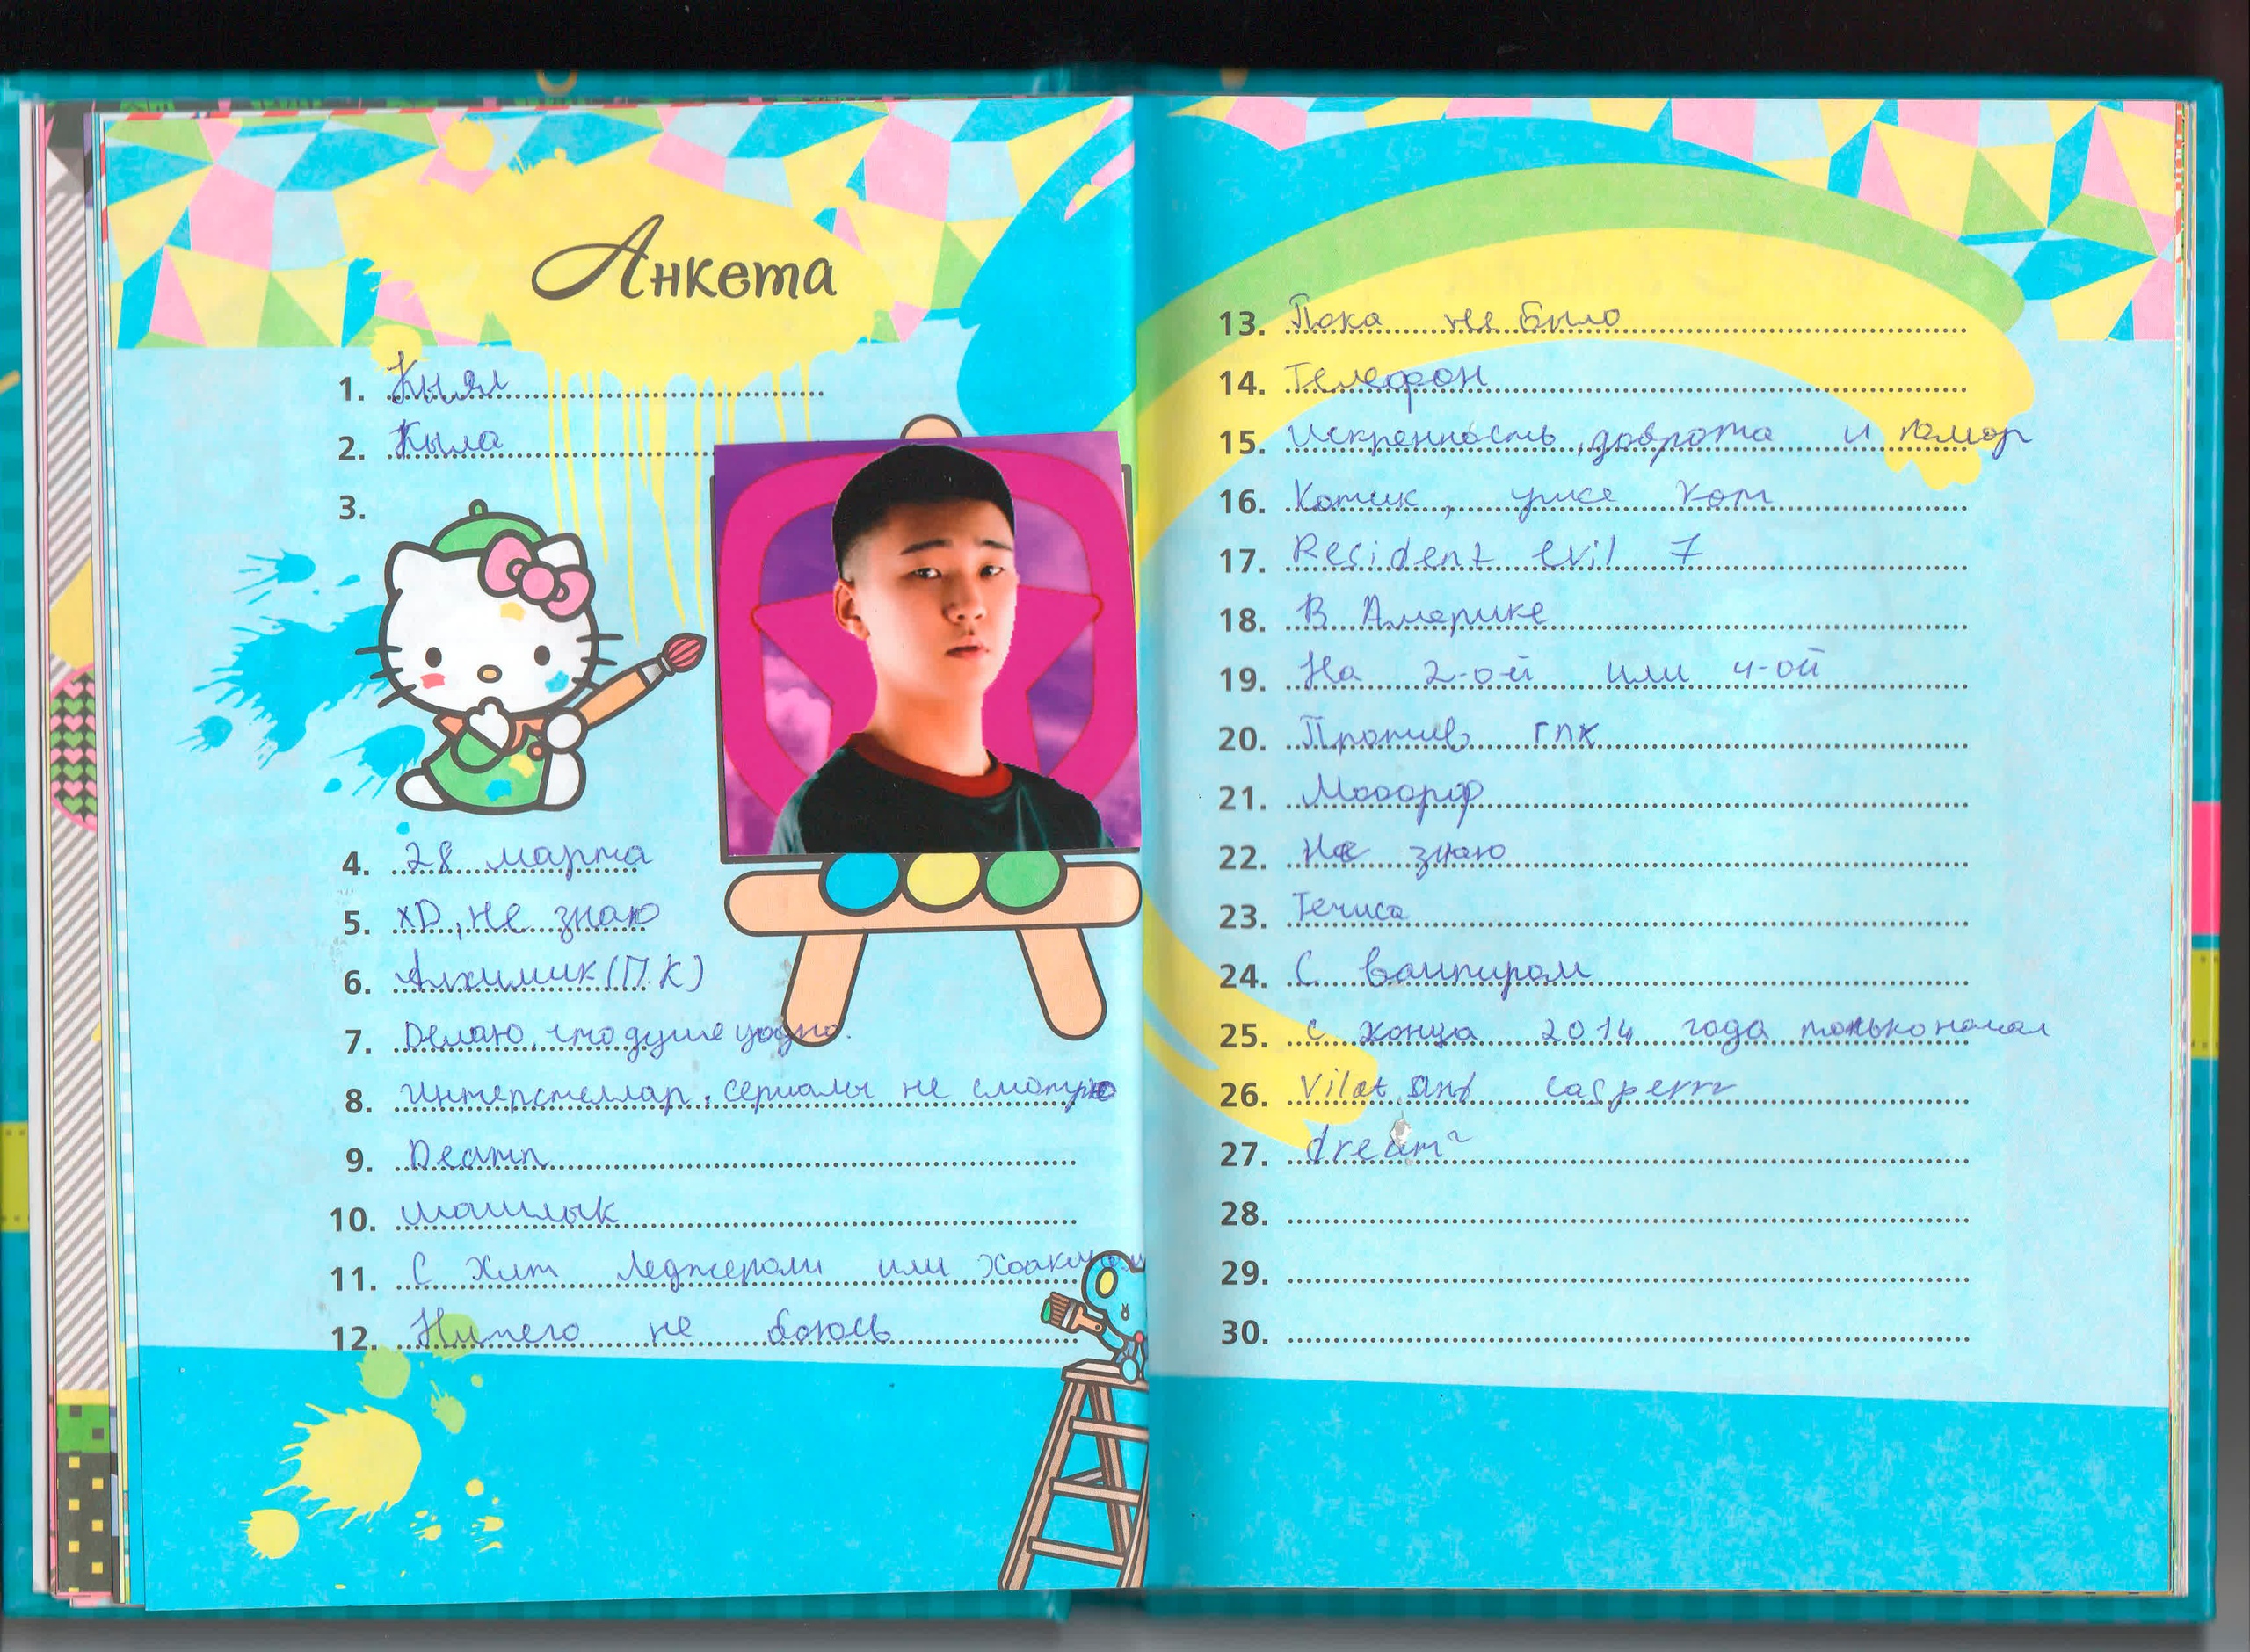 Анкета
1. Кыял
2. Кыла
3.
4. 28 марта
5. XD, не знаю
6. Алхимик (П.К)
7. Делаю, что душе угодно.
8. Интерстеллар, сериалы не смотрю
9. Деатп
10. Шашлык
11. С Хит Леджером или
12. Ничего не боюсь
13. Пока не было
14. Телефон
15. Искренность, доброта и юмор
16. Котик, уже кот
17. Resident evil 7
18. В Америке
19. На 2-ой или 4-ой
20. Против гпк
21. Мооорф
22. Не знаю
23. Течиса
24. С вампиром
25. с конца 2014 года только начал
26. Vilat and casperrr
27. dream
28.
29.
30.